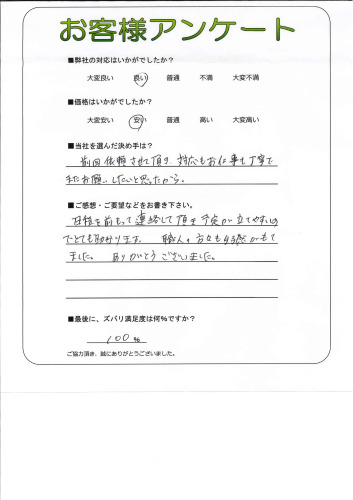 お客様アンケート
■弊社の対応はいかがでしたか？
大変良い 良い 普通 不満 大変不満
■価格はいかがでしたか？
大変安い 安い 普通 高い 大変高い
■当社を選んだ決め手は？
前回依頼させて頂き、対応もお仕事も丁寧で
またお願いしたいと思ったから。
■ご感想・ご要望などをお書き下さい。
日程を前もって連絡して頂き予定が立てやすいの
でとても助かります。 職人の方々も好感がもて
ました。 ありがとうございました。
■最後に、ズバリ満足度は何％ですか？
100％
ご協力頂き、誠にありがとうございました。